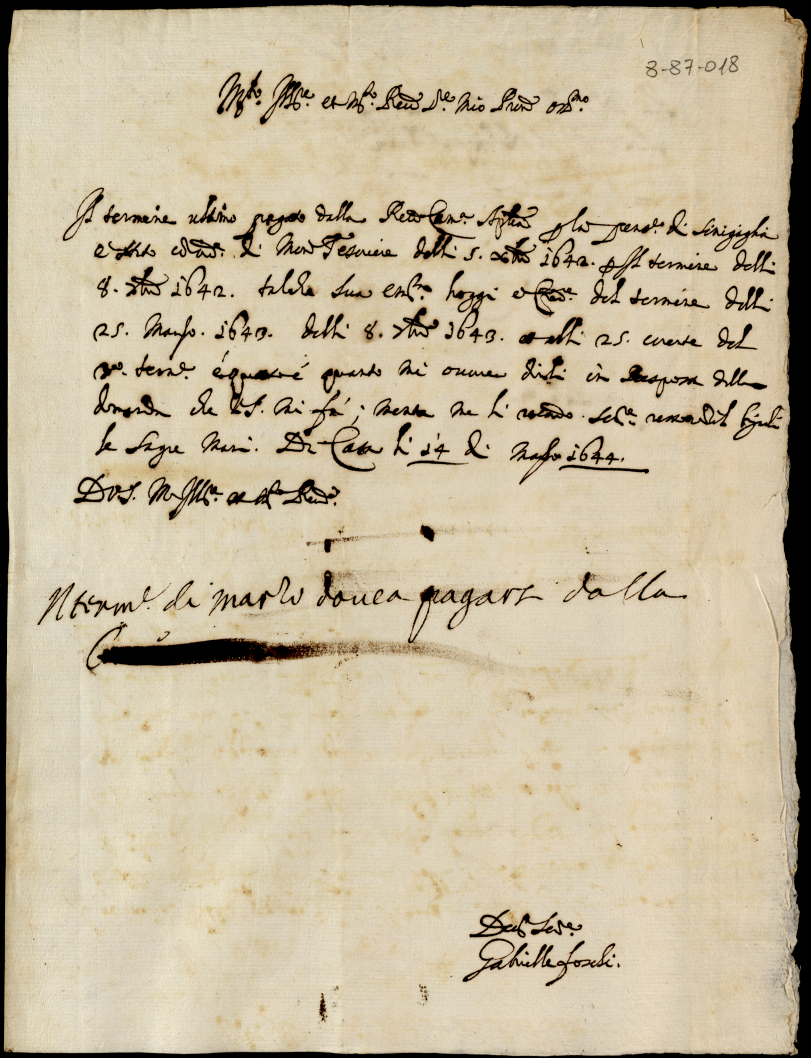 3-87-018
M.to Ill.re et M.to Rev.do S.re mio Pron. oss.mo
Il termine ultimo pagato dalla Rev. Cam.a Ap.lica p la pens.e di Sinigaglia
è stato di Mon. Tesoriere delli 5. Xbre 1642. p Il termine delli
8. 7bre 1642. talche sua em.za hoggi è Cred.e del termine delli
25. Marzo. 1643. delli 8. 7bre 1643. et alli 25. corente del
3.o term.e é quanto mi occorre dirli in Risposta della
domanda che V.S. mi fá; mentre me li rendo le
le Sagre Mani. Di Casa li 14 di Marzo 1644.
D V.S. M. Ill.re et M.to Rev.
Il term.e di marzo dovea pagarsi dalla
Dev. Ser.e
Gabrielle Foschi.